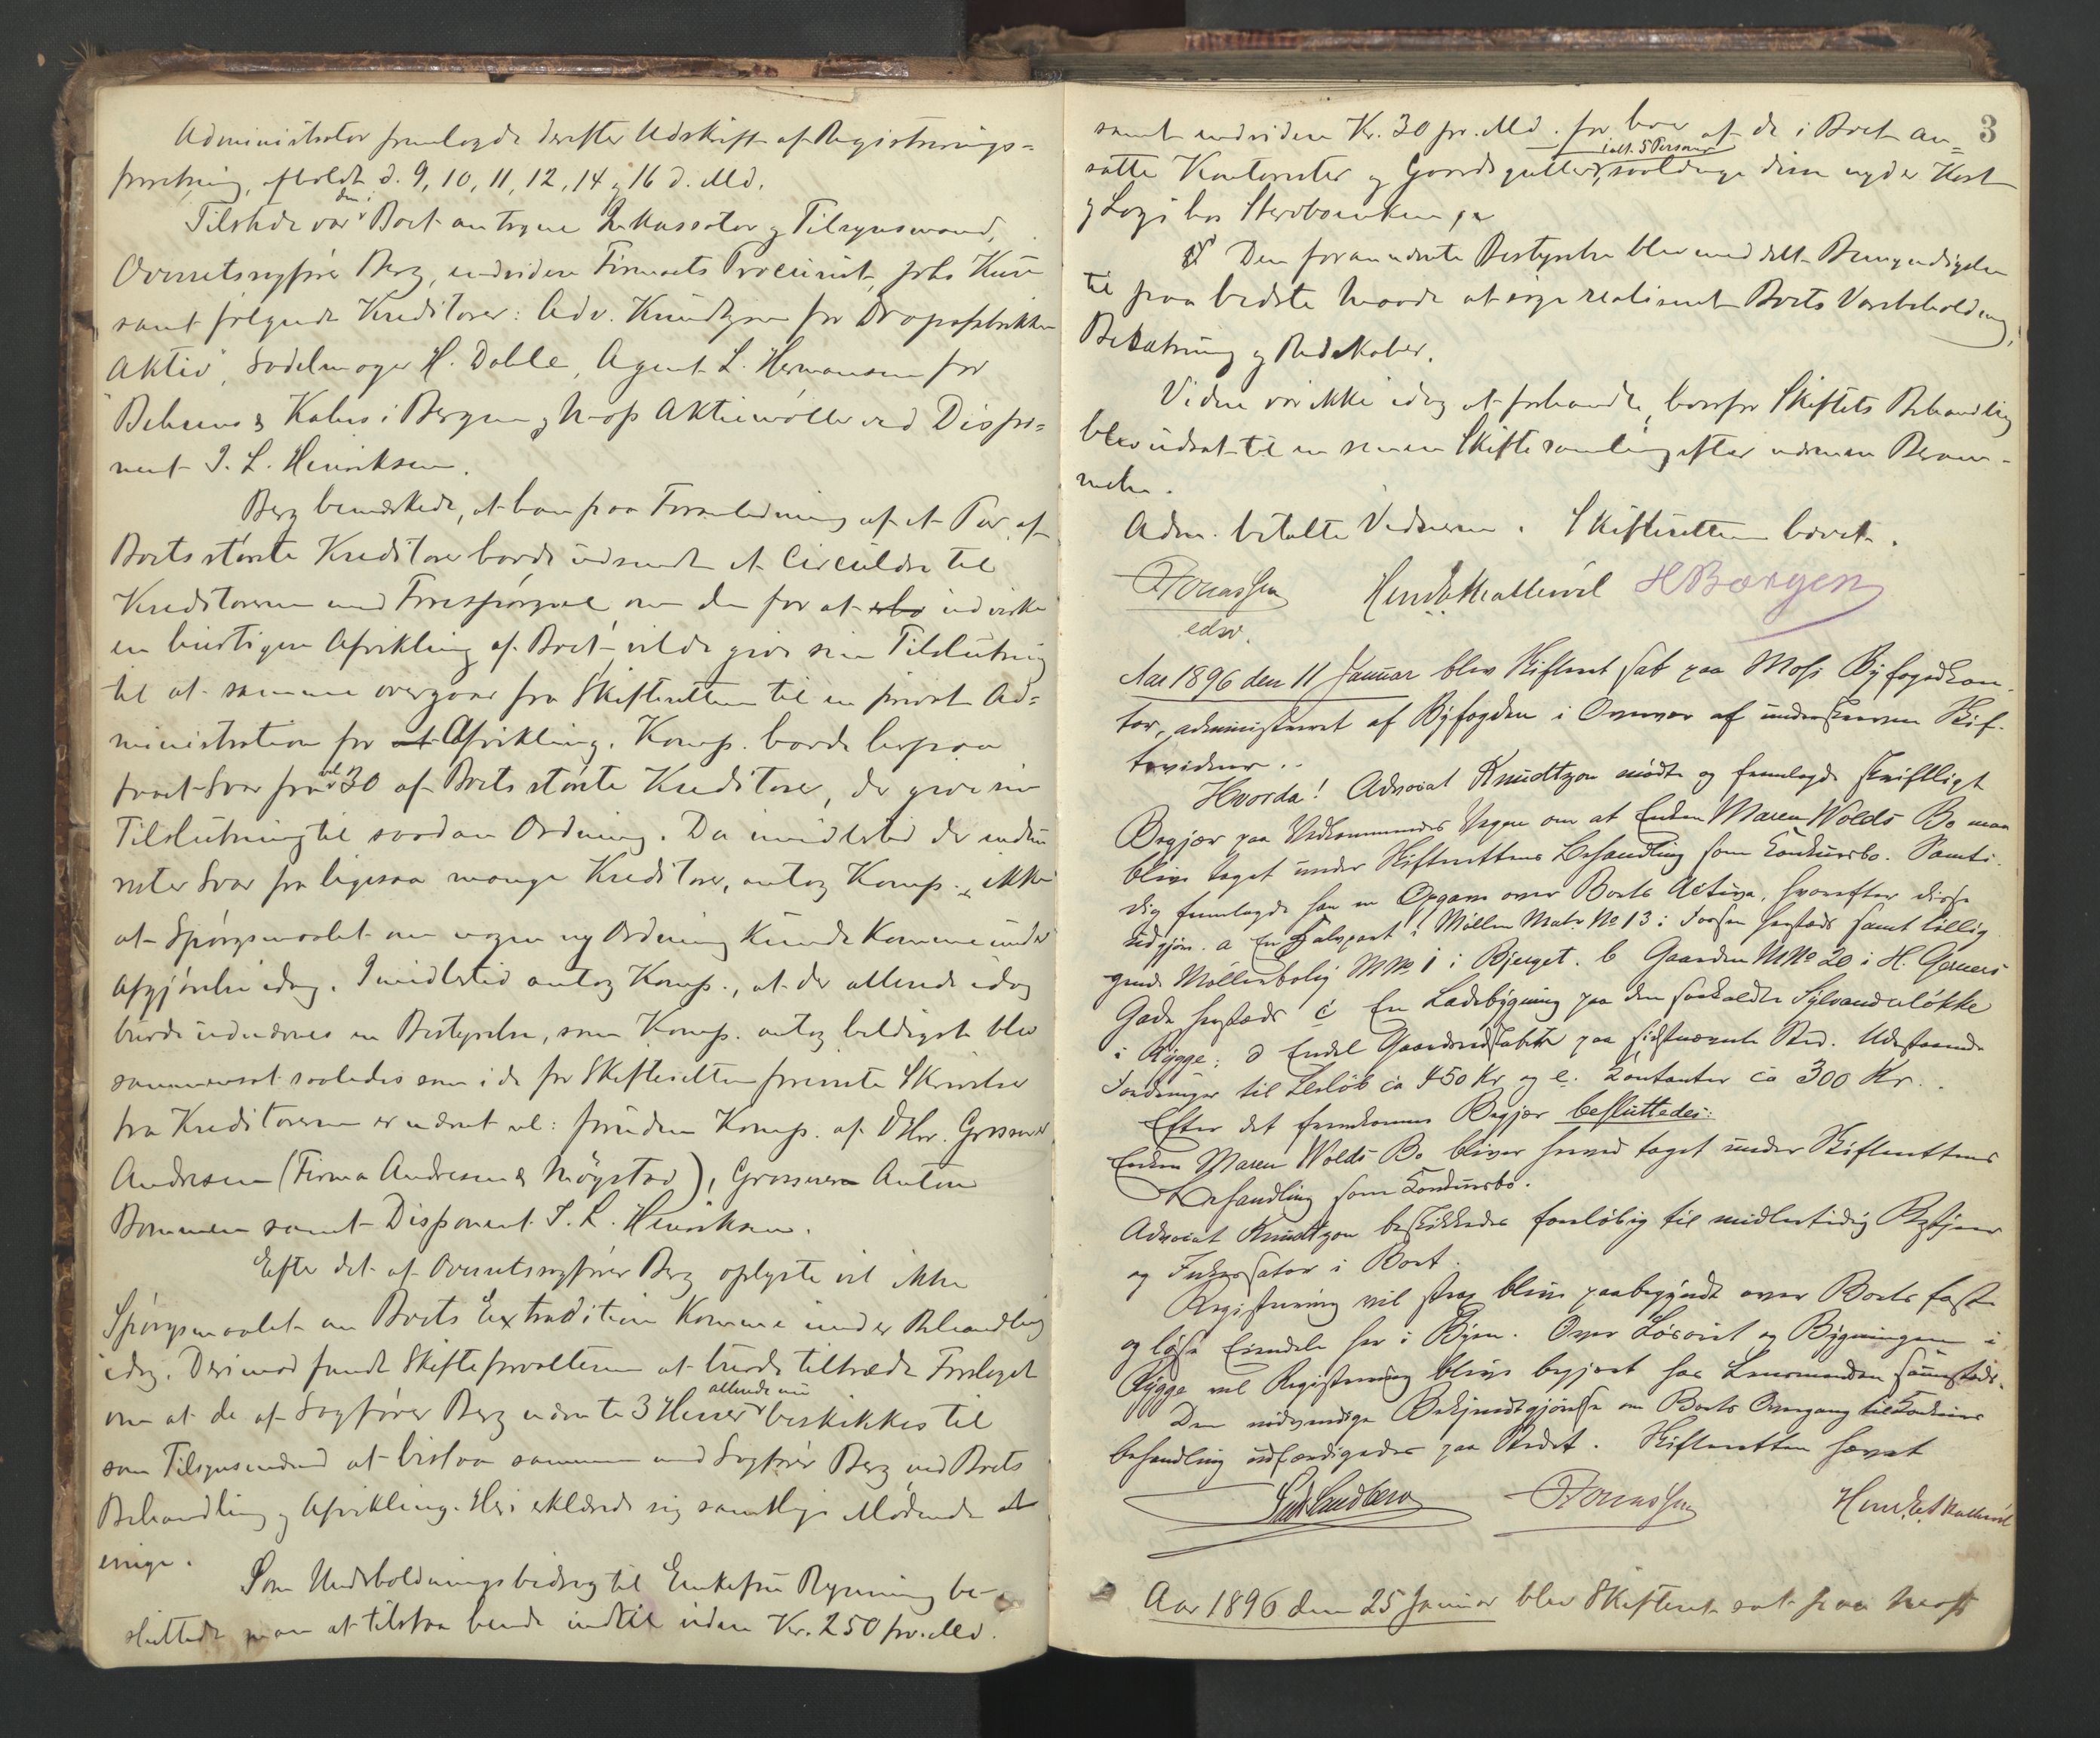 Administrator fremlagde derefter Udskrift af Registrerings=
forretning, afholdt d. 9, 10, 11, 12, 14 og 16 d. Md.
Tilstede var den i Boet antagne Inkassator og Tilsynsmand,
Overretssagfører Berg, endvidere Firmaets Procurist, Johs
samt følgende Kreditorer: Adv. Knudtzon for Dropsfabrikken
"Aktiv", Sadelmager H. Dahle, Agent L. Hermansen for
Behrens & Kahrs i Bergen og Moss Aktiemølle ved Dispo=
nent I. L. Henriksen.
Berg bemærkede, at han paa Foranledning af et Par af
Boets største Kreditorer havde udsendt et Circulære til
Kreditorerne med Forespørgsel, om de for at udvirke
en hurtigere Afvikling af Boet vilde give sin Tilslutning
til at samme overgaar fra Skifteretten til en privat Ad=
ministration for Afvikling. Komp. havde herpaa
faaet Svar fra vel 30 af Boets største Kreditorer, der give sin
Tilslutning til saadan Ordning. Da imidlertid der endnu
rester Svar fra ligesaa mange Kreditorer, antog Komp. ikke
at Spørgsmaalet om nogen ny Ordning kunde komme under
Afgjørelse idag. Imidlertid antog Komp., at der allerede idag
burde udnævnes en Bestyrelse, som Komp. antog heldigst blev
sammensat saaledes som i de for Skifteretten foreviste Skrivelser
fra Kreditorerne er nævnt vl: foruden Komp. af DHr. Grosserer
Andresen (Firma Andresen & Møystad), Grosserer Anton
Bommen samt Disponent I. L. Henriksen.
Efter det af Overretssagfører Berg oplyste vil ikke
Spørgsmaalet om Boets Extradition komme under Behandling
idag. Derimod fandt Skifteforvalteren at burde tiltræde Forslaget
om at de af Sagfører Berg nævnte 3 Herrer allerede nu beskikkes til
som Tilsynsmænd at bistaa sammen med Sagfører Berg ved Boets
Behandling og Afvikling. Heri erklærede sig samtlige Mødende
enige.
Som Underholdningsbidrag til Enkefru Rynning be-
sluttede man at tilstaa hende indtil videre Kr. 250 pr. Md.
3
samt endvidere Kr. 30 pr. Md. for hver af de i Boet an=
satte Kontorister og Gaardsgutter, ialt 5 Personer, saalænge disse nyder Kost
og Logi hos Stervboenken
Den forannævnte Bestyrelse blev meddelt Bemyndigelse
til paa bedste Maade at søge realiseret Boets Varebeholdning,
Besætning og Redskaber.
Videre var ikke idag at forhandle, hvorfor Skiftets Behandling
blev udsat til en senere Skiftesamling efter nærmere Beram-
melse.
Adm. betalte Vidnerne. Skifteretten hævet.
Jonassen
edsv.
H Børgen
Aar 1896 den 11 Januar blev Skifteret sat paa Moss Byfogedkon-
tor, administreret af Byfogden i Overvær af underskrevne Skif-
tevidner..
Hvorda! Advocat Knudtzon mødte og fremlagde skriftligt
Begjær paa Vedkommendes Vegne om at Enken Maren Wolds Bo maa
blive taget under Skifterettens Behandling som Konkursbo. Samti-
dig fremlagde han en Opgave over Boets Activa, hvorefter disse
udgjør. a En Halvpart i Møllen Matr. No 13 i Fossen herstæds samt tillig-
gende Møllerbolig M No 1 i Bjerget. b Gaarden M No 20 i H. Gerners
Gade herstæds c En Ladebygning paa den saakaldte Sylvanderløkke
i Rygge; d Endel Gaardsredskaber paa sidstnævnte Sted. Udestaaende
Fordringer til Beløb ca 450 Kr og e. Kontanter ca 300 Kr..
Efter det fremkomne Begjær besluttedes:
Enken Maren Wolds Bo bliver herved taget under Skifterettens
Behandling som Konkursbo.
Advocat Knudtzon beskikkedes foreløbig til midlertidig Bestyrer
og Inkassator i Boet.
Registrering vil strax blive paabegyndt over Boets faste
og løse Eiendele her i Byen. Over Løsøret og Bygningen i
Rygge vil Registrering blive begjært hos Lensmanden sammesteds.
Den nødvendige Bekjendtgjørelse om Boets Overgang til Konkurs
behandling udfærdigedes paa Stedet. Skifteretten hævet
Jonassen
Aar 1896 den 25 Januar blev Skifteret sat paa Moss